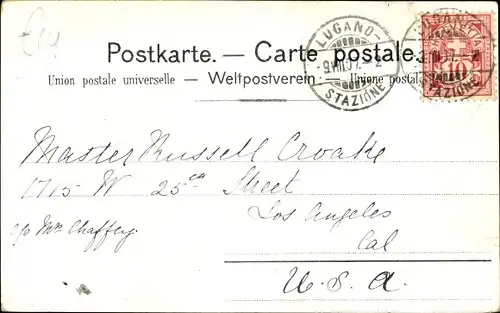 Postkarte. — Carte postale.
Union postale universelle — Weltpostverein — Unione postale
LUGANO-
STAZIONE
HELVETIA
10
Master Russell Croake
1715 W 25th Street
Los Angeles
c/o Mrs Chaffey.
Cal
U.S.A.